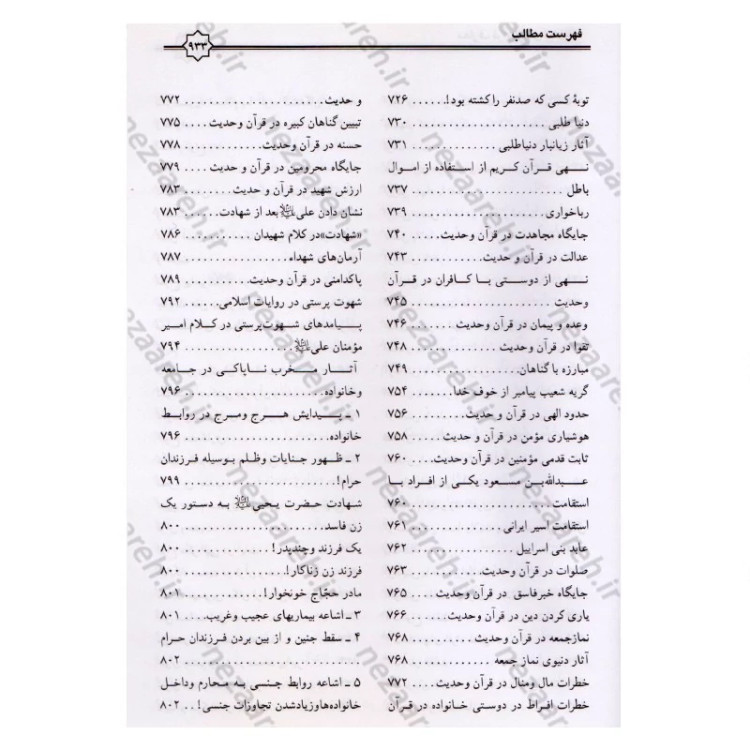 فهرست مطالب
۹۳۳
توبهٔ کسی که صدنفر را کشته بود!...... ۷۲۶
دنیا طلبی ........................ ۷۳۰
آثار زیانبار دنیاطلبی .............. ۷۳۱
نـهی قرآن کریم از استفاده از اموال
باطل ........................... ۷۳۷
رباخواری ........................ ۷۳۹
جایگاه مجاهدت در قرآن وحدیث .... ۷۴۰
عدالت در قرآن و حدیث ............ ۷۴۳
نـهی از دوستی بـا کافران در قرآن
وحدیث .......................... ۷۴۵
وعده و پیمان در قرآن وحدیث ....... ۷۴۶
تقوا در قرآن وحدیث ............... ۷۴۸
مبارزه با گناهان................... ۷۴۹
گریه شعیب پیامبر از خوف خدا...... ۷۵۴
حدود الهی در قرآن و حدیث......... ۷۵۶
هوشیاری مؤمن در قرآن و حدیث .... ۷۵۸
ثابت قدمی مؤمنین در قرآن وحدیث... ۷۶۰
عـبدالله‌بـن مسعود یکی از افراد بـا
استقامت ......................... ۷۶۰
استقامت اسیر ایرانی ............... ۷۶۱
عابد بنی اسراییل .................. ۷۶۲
صلوات در قرآن وحدیث ............ ۷۶۳
جایگاه خبرفاسق در قرآن وحدیث .... ۷۶۵
یاری کردن دین در قرآن وحدیث ..... ۷۶۶
نمازجمعه در قرآن وحدیث .......... ۷۶۸
آثار دنیوی نماز جمعه .............. ۷۶۸
خطرات مال ومنال در قرآن وحدیث ... ۷۷۲
خطرات افراط در دوستی خانواده در قرآن
و حدیث......................... ۷۷۲
تبیین گناهان کبیره در قرآن وحدیث ... ۷۷۵
حسنه در قرآن وحدیث ............. ۷۷۸
جایگاه محرومین در قرآن و حدیث ... ۷۷۹
ارزش شهید در قرآن و حدیث ....... ۷۸۳
نشان دادن علی علیه‌السلام بعد از شهادت...... ۷۸۳
«شهادت»در کلام شهیدان .......... ۷۸۶
آرمان‌های شهداء .................. ۷۸۷
پاکدامنی در قرآن وحدیث........... ۷۸۹
شهوت پرستی در روایات اسلامی ..... ۷۹۲
پـیامدهای شـهوت‌پرستی در کـلام امیر
مؤمنان علی علیه‌السلام.................... ۷۹۴
آثـار مـخرب نـاپاکی در جامعه
وخانواده......................... ۷۹۶
۱ ـ پـیدایش هـرج ومرج در روابـط
خانواده.......................... ۷۹۶
۲ ـ ظـهور جنایات وظلم بوسیله فرزندان
حرام!........................... ۷۹۹
شهادت حـضرت یـحیی علیه‌السلام بـه دستور یک
زن فاسد......................... ۸۰۰
یک فرزند وچندپدر!............... ۸۰۰
فرزند زن زناکار!.................. ۸۰۰
مادر حجّاج خونخوار!.............. ۸۰۱
۳ ـ اشاعه بیماریهای عجیب وغریب... ۸۰۱
۴ ـ سقط جنین و از بین بردن فرزندان حرام
............................... ۸۰۲
۵ ـ اشاعه روابط جنسی بـه محارم وداخل
خانواده‌ها وزیادشدن تجاوزات جنسی!.. ۸۰۲
nezaareh.ir